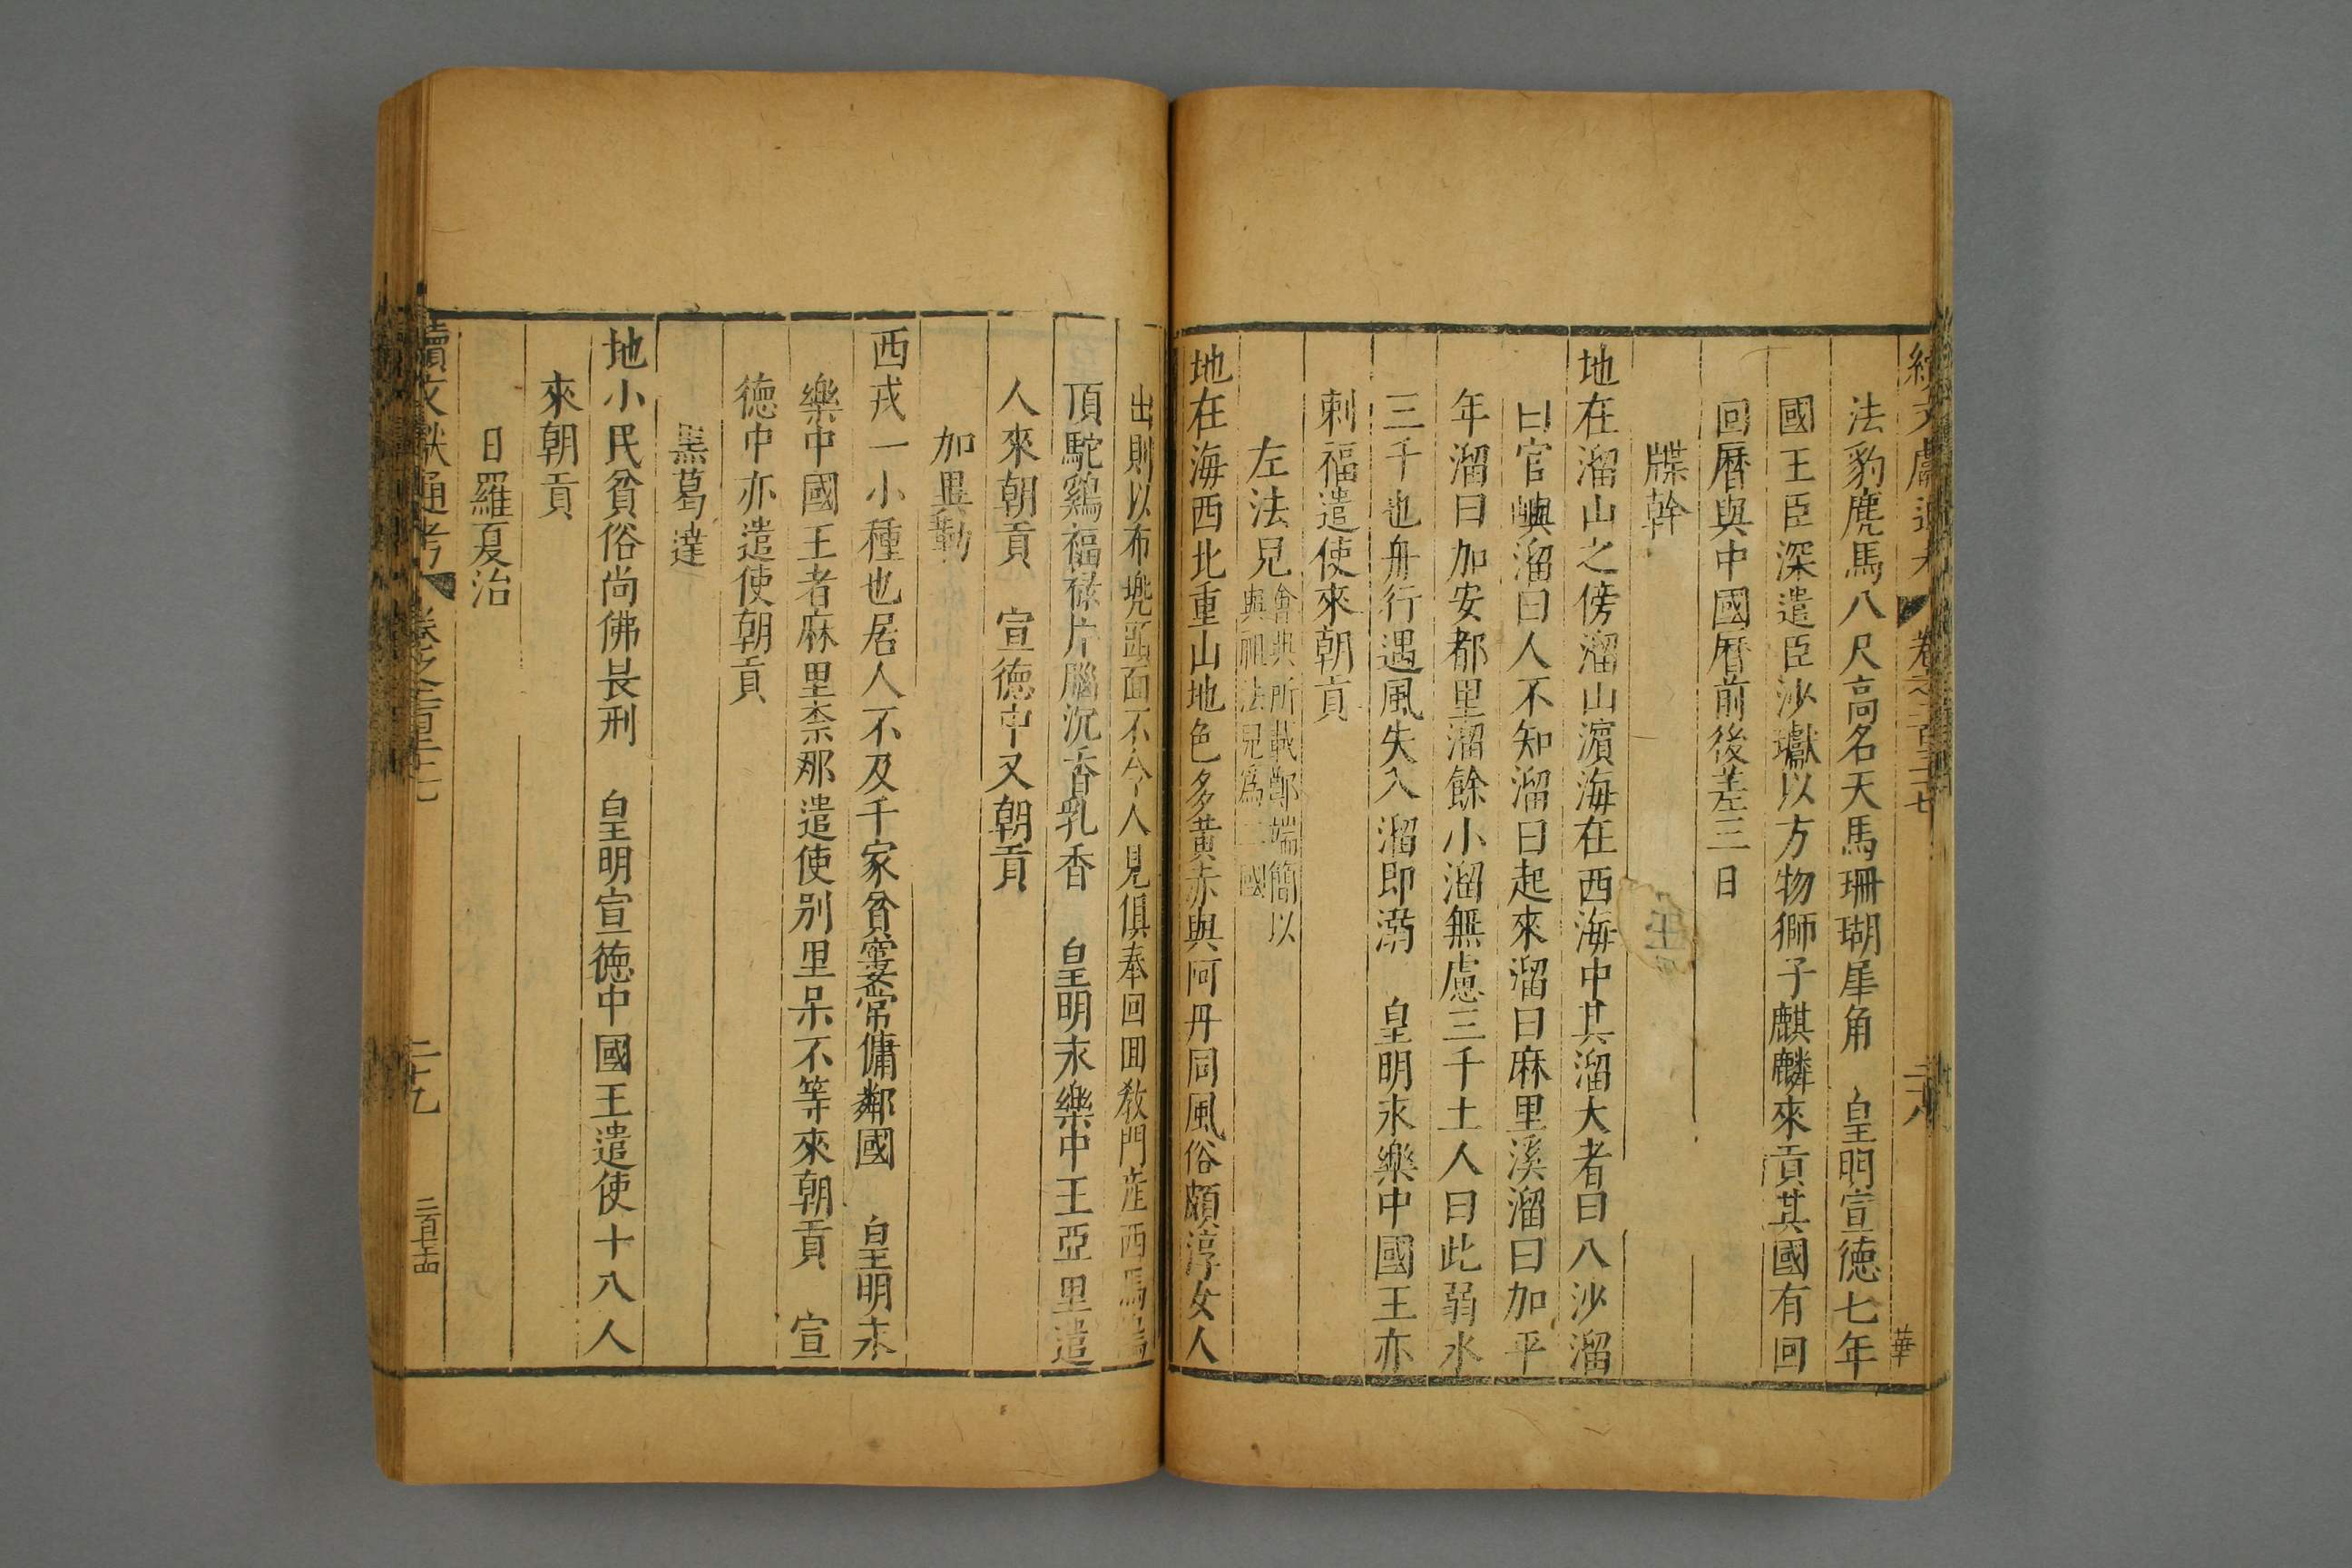 法豹麂馬八尺高名天馬珊瑚犀角 皇明宣德七年
國王臣深遣臣沙瓛以方物獅子麒麟來貢其國有回
回曆與中國曆前後差三日
牒幹
地在溜山之傍溜山濵海在西海中其溜大者曰八沙溜
曰官嶼溜曰人不知溜曰起來溜曰麻里溪溜曰加平
年溜曰加安都里溜餘小溜無慮三千土人曰此弱水
三千也舟行遇風失入溜即溺 皇明永樂中國王亦
剌福遣使來朝貢
左法兒會典所載鄭端簡以
與祖法兒爲二國
地在海西北重山地色多黄赤與阿丹同風俗頗淳女人
出則以布兠頭面不令人見俱奉回回敎門産西馬
頂駝鷄福禄片腦沉香乳香 皇明永樂中王亞里遣
人來朝貢 宣德中又朝貢
加異勒
西戎一小種也居人不及千家貧窶常傭鄰國 皇明永
樂中國王者麻里柰那遣使别里呆不等來朝貢 宣
德中亦遣使朝貢
黑葛達
地小民貧俗尚佛畏刑 皇明宣德中國王遣使十八人
來朝貢
日羅夏治
續文獻通考 卷之二百三十七
二十九